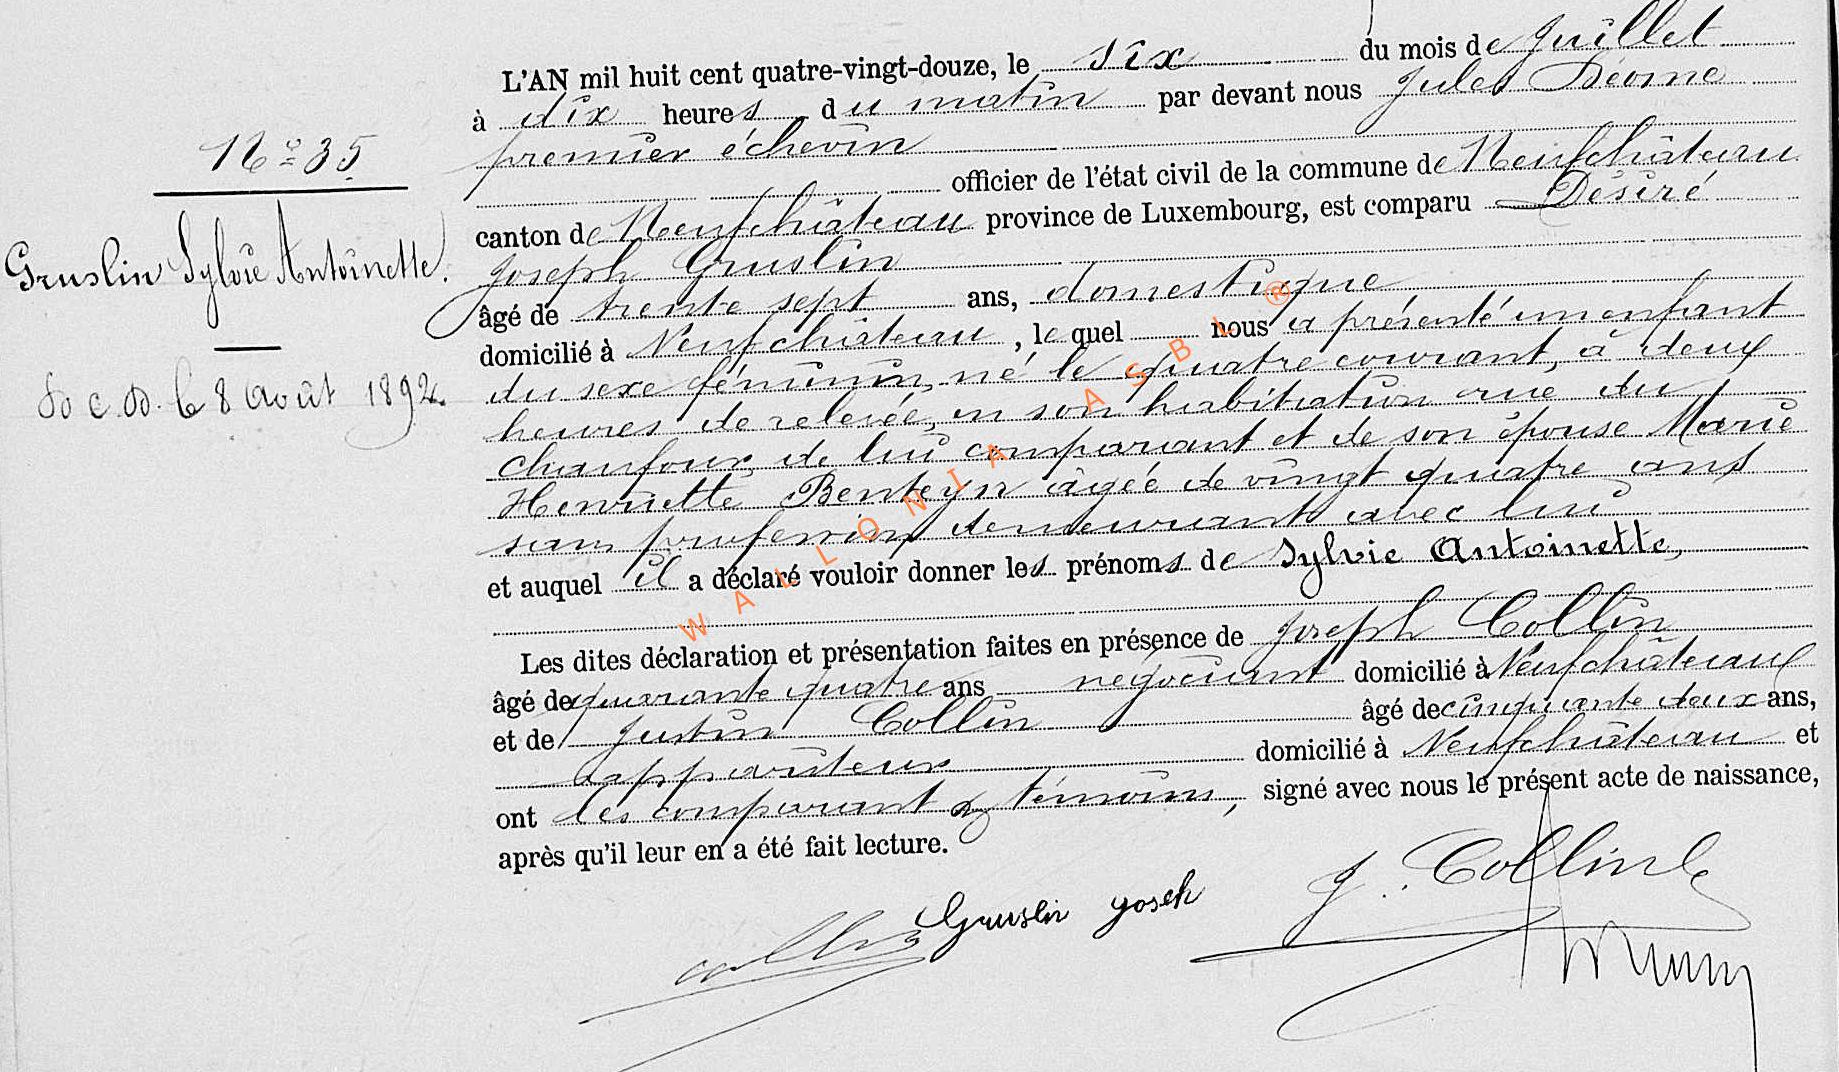 N° 35
Gruslin Sylvie Antoinette.
le 8 Août 1892.
L'AN mil huit cent quatre-vingt-douze, le six du mois de Juillet
à dix heures du matin par devant nous Jules
premier échevin
officier de l'état civil de la commune de Neufchâteau
canton de Neufchâteau province de Luxembourg, est comparu Désiré
Joseph Gruslin
âgé de trente sept ans, domestique
domicilié à Neufchâteau, lequel nous a présenté un enfant
du sexe féminin, né le quatre courant, à deux
heures de relevée, en son habitation rue du
chaufour, de lui comparant et de son épouse Marie
Henriette Benteyn âgée de vingt quatre ans
sans profession demeurant avec lui
et auquel il a déclaré vouloir donner les prénoms de Sylvie Antoinette,
Les dites déclaration et présentation faites en présence de Joseph Collin
âgé de quarante quatre ans négociant domicilié à Neufchâteau
et de Justin Collin âgé de cinquante deux ans,
appariteur domicilié à Neufchâteau et
ont les comparant & témoins, signé avec nous le présent acte de naissance,
après qu'il leur en a été fait lecture.
J. Collin
Gruslin Joseh
WALLONIA ASBL ®